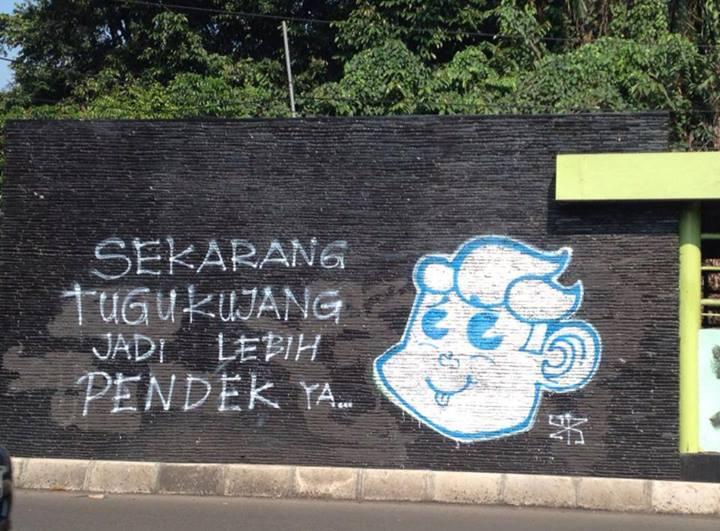 SEKARANG
TUGU KUJANG
JADI LEBIH
PENDEK YA...